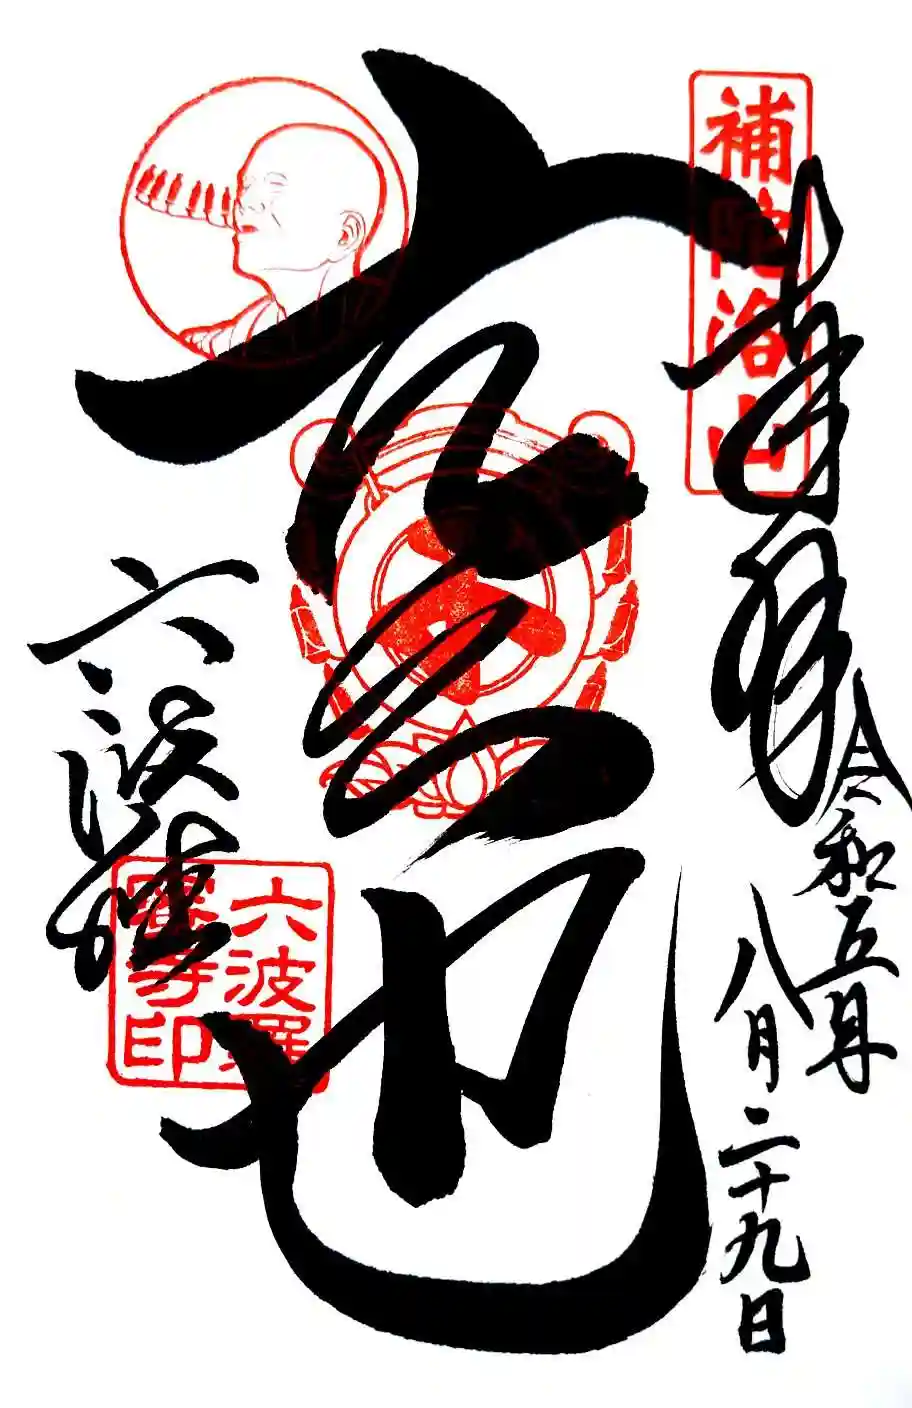 補陀洛山
奉拝
令和五年
八月二十九日
空也
六波
六波羅
蜜寺印